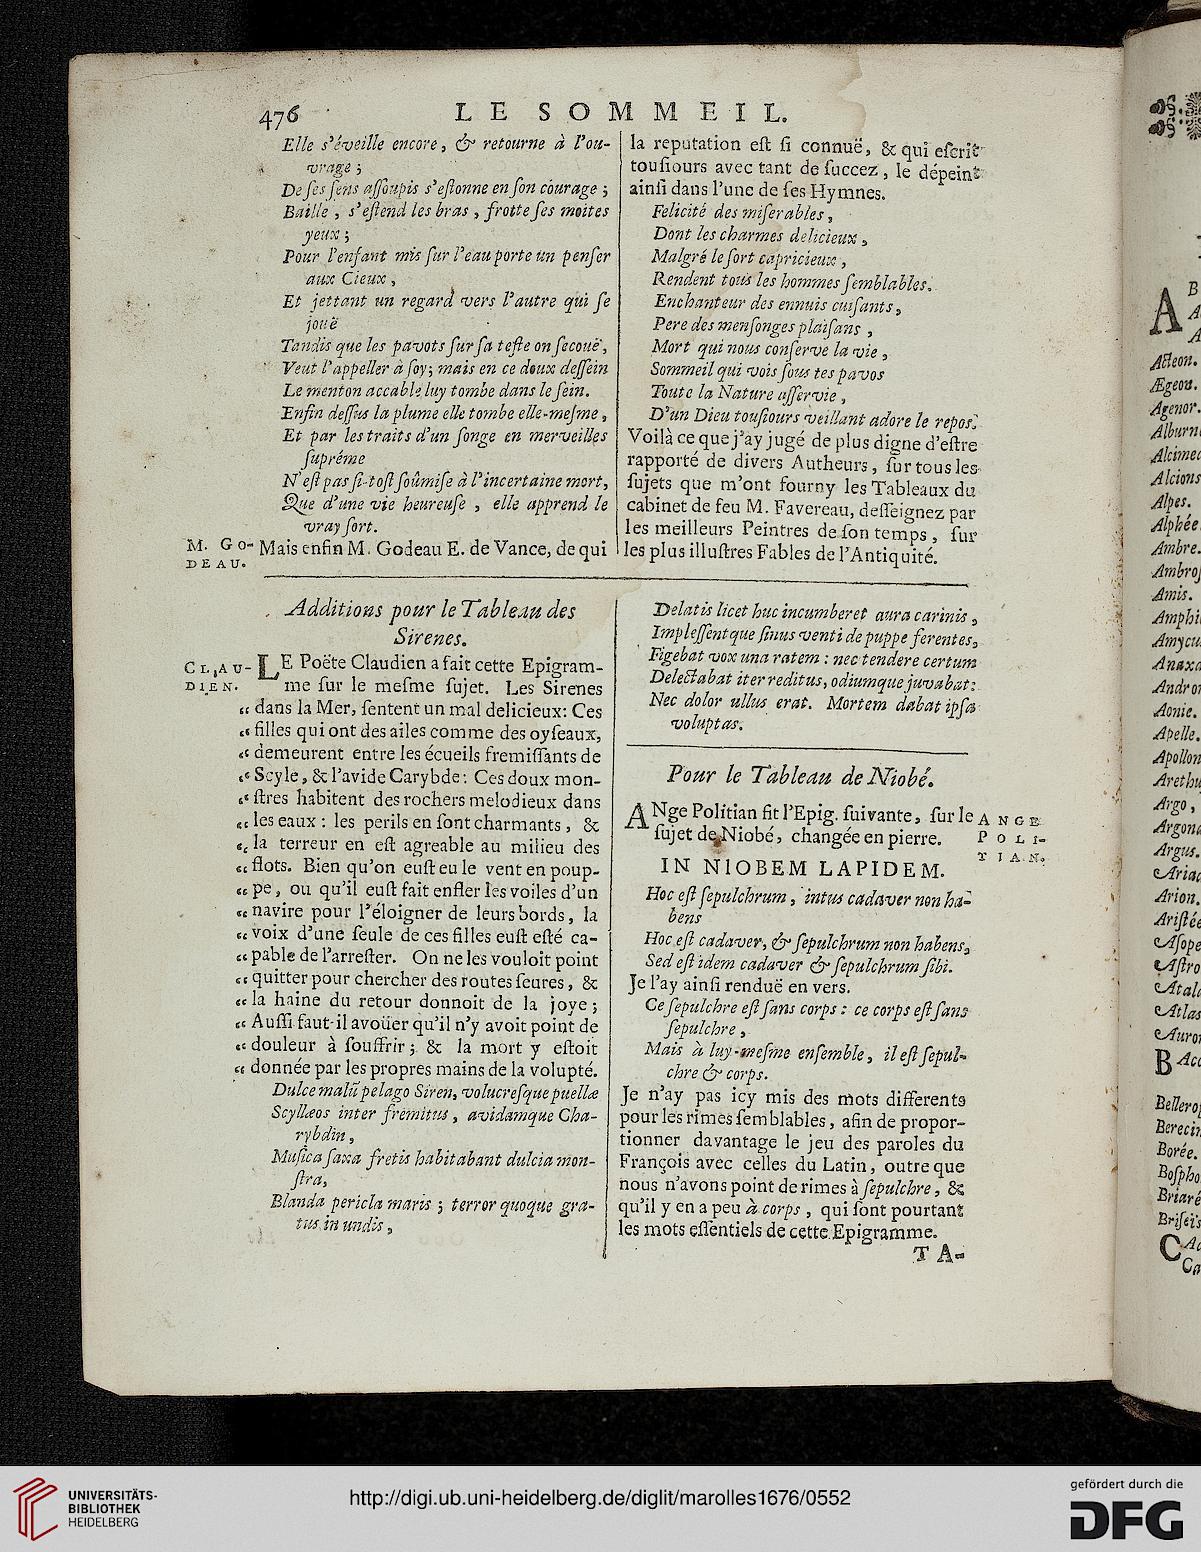 476
LE SOMMEIL.
Elle s'éveille encore, & retourne à l'ou-
vrage;
De ses sens assoupis s'estonne en son courage;
Baille, s'estend les bras, frotte ses moites
yeux;
Pour l'enfant mis sur l'eau porte un penser
aux Cieux,
Et jettant un regard vers l'autre qui se
jouë
Tandis que les pavots sur sa teste on secouë,
Veut l'appeller à soy; mais en ce doux dessein
Le menton accablé luy tombe dans le sein.
Enfin dessus la plume elle tombe elle-mesme,
Et par les traits d'un songe en merveilles
supréme
N'est pas si-tost soûmise à l'incertaine mort,
Que d'une vie heureuse, elle apprend le
vray sort.
M. GO-
DEAU.
Mais enfin M. Godeau E. de Vance, de qui
la reputation est si connuë, & qui escrit
tousiours avec tant de succez, le dépeint
ainsi dans l'une de ses Hymnes.
Felicité des miserables,
Dont les charmes delicieux,
Malgré le sort capricieux,
Rendent tous les hommes semblables.
Enchanteur des ennuis cuisants,
Pere des mensonges plaisans,
Mort qui nous conserve la vie,
Sommeil qui vois sous tes pavos
Toute la Nature asservie,
D'un Dieu tousiours veillant adore le repos.
Voilà ce que j'ay jugé de plus digne d'estre
rapporté de divers Autheurs, sur tous les
sujets que m'ont fourny les Tableaux du
cabinet de feu M. Favereau, desseignez par
les meilleurs Peintres de son temps, sur
les plus illustres Fables de l'Antiquité.
Additions pour le Tableau des
Sirenes.
CLAU-
DIEN.
LE Poëte Claudien a fait cette Epigram-
me sur le mesme sujet. Les Sirenes
“ dans la Mer, sentent un mal delicieux: Ces
“ filles qui ont des ailes comme des oyseaux,
“ demeurent entre les écueils fremissants de
“ Scyle, & l'avide Carybde: Ces doux mon-
“ stres habitent des rochers melodieux dans
“ les eaux: les perils en sont charmants, &
“ la terreur en est agreable au milieu des
“ flots. Bien qu'on eust eu le vent en poup-
“ pe, ou qu'il eust fait enfler les voiles d'un
“ navire pour l'éloigner de leurs bords, la
“ voix d'une seule de ces filles eust esté ca-
“ pable de l'arrester. On ne les vouloit point
“ quitter pour chercher des routes seures, &
“ la haine du retour donnoit de la joye;
“ Aussi faut-il avoüer qu'il n'y avoit point de
“ douleur à souffrir; & la mort y estoit
“ donnée par les propres mains de la volupté.
Dulce malũ pelago Siren, volucresque puellæ
Scyllæos inter fremitus, avidamque Cha-
rybdin,
Musica saxa fretis habitabant dulcia mon-
stra,
Blanda pericla maris; terror quoque gra-
tus in undis,
Delatis licet huc incumberet aura carinis,
Implessentque sinus venti de puppe ferentes,
Figebat vox una ratem: nec tendere certum
Delectabat iter reditus, odiumque juvabat:
Nec dolor ullus erat. Mortem dabat ipsa
voluptas.
Pour le Tableau de Niobé.
ANge Politian fit l'Epig. suivante, sur le
sujet de Niobé, changée en pierre.
ANGE
POLI-
TIAN.
IN NIOBEM LAPIDEM.
Hoc est sepulchrum, intus cadaver non ha-
bens
Hoc est cadaver, & sepulchrum non habens,
Sed est idem cadaver & sepulchrum sibi.
Je l'ay ainsi renduë en vers.
Ce sepulchre est sans corps: ce corps est sans
sepulchre,
Mais à luy-mesme ensemble, il est sepul-
chre & corps.
Je n'ay pas icy mis des mots differents
pour les rimes semblables, afin de propor-
tionner davantage le jeu des paroles du
François avec celles du Latin, outre que
nous n'avons point de rimes à sepulchre, &
qu'il y en a peu à corps, qui sont pourtant
les mots essentiels de cette Epigramme.
TA-
A
Acteon.
Ægeon.
Agenor.
Alpes.
Ambre.
Amis.
Aonie.
Apelle.
Argo,
Argus.
Arion.
B
Borée.
C
UNIVERSITÄTS-
BIBLIOTHEK
HEIDELBERG
http://digi.ub.uni-heidelberg.de/diglit/marolles1676/0552
gefördert durch die
DFG